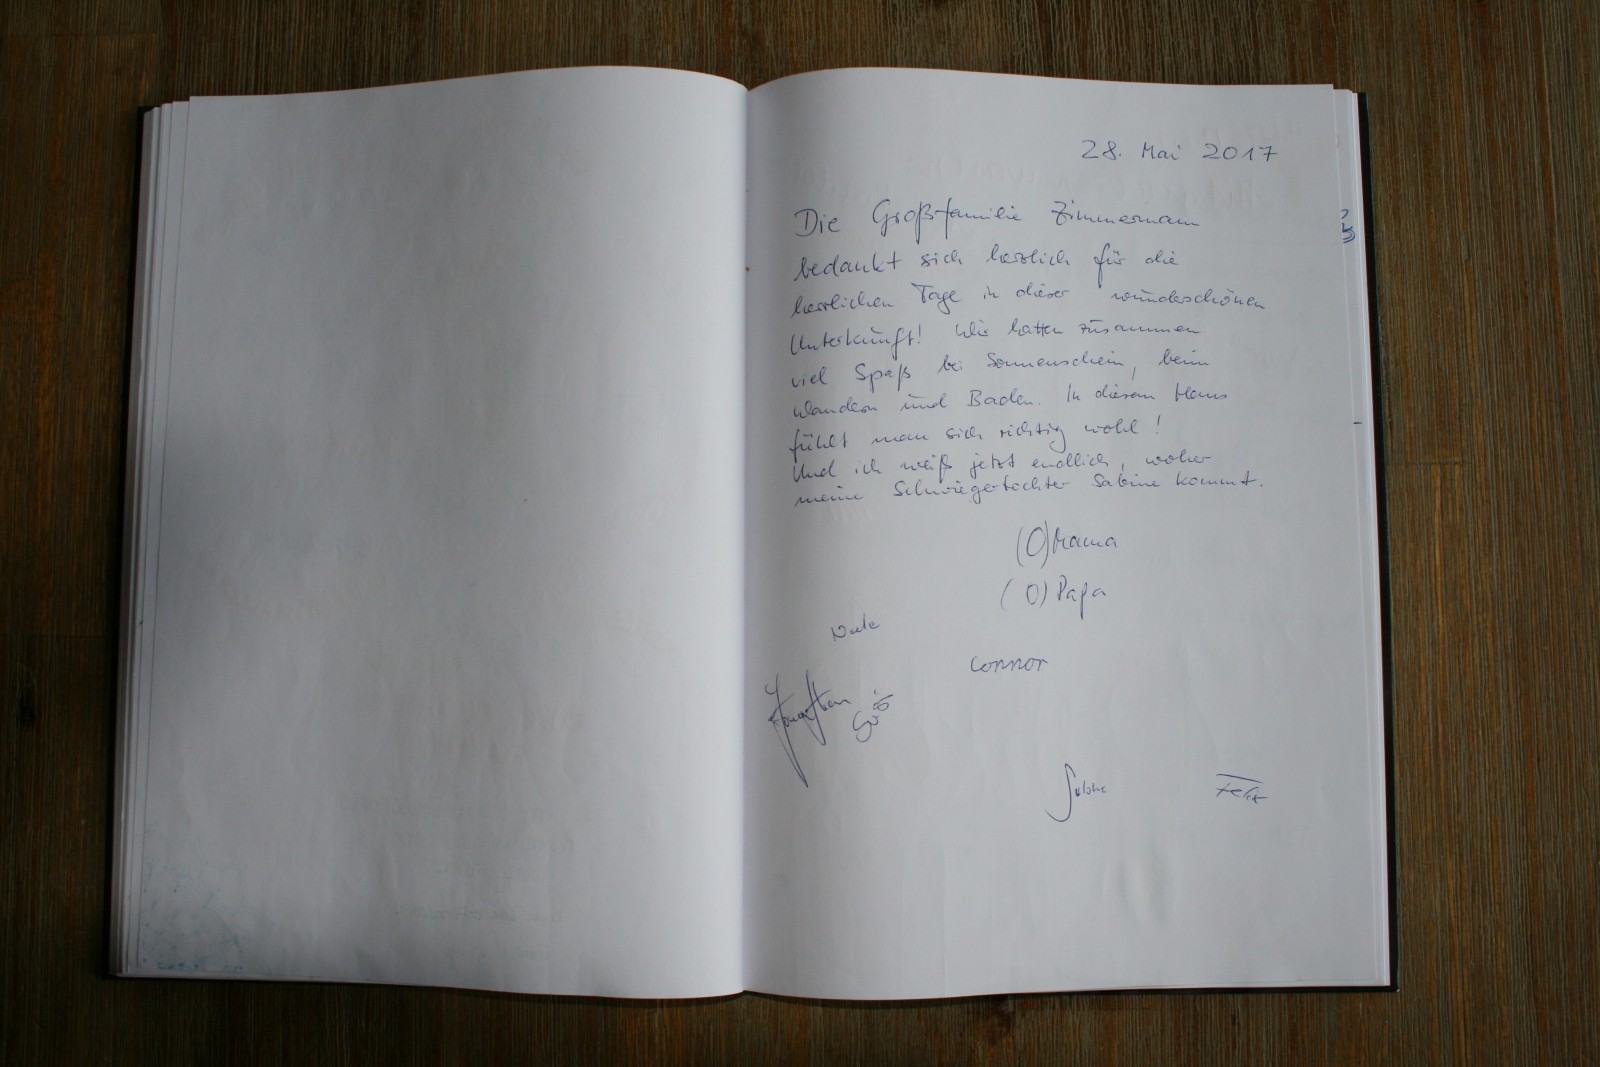 28. Mai 2017
Die Großfamilie Zimmermann
bedankt sich herzlich für die
herrlichen Tage in dieser wunderschönen
Unterkunft! Wir hatten zusammen
viel Spaß bei Sonnenschein, beim
Wandern und Baden. In diesem Haus
fühlt man sich richtig wohl!
Und ich weiß jetzt endlich, woher
meine Schwiegertochter Sabine kommt.
(O)Mama
(O)Papa
Connor
Sabine Felix